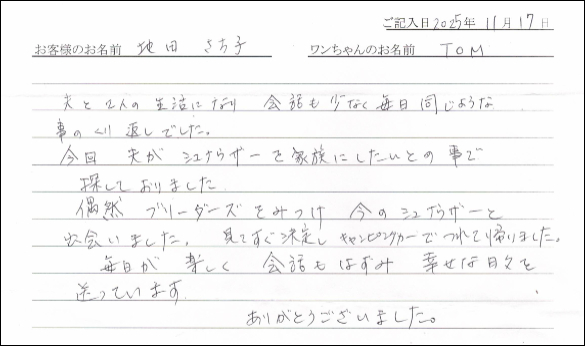 ご記入日2025年 11月17日
お客様のお名前 池田 さち子 ワンちゃんのお名前 TOM
夫と2人の生活になり 会話も少なく毎日同じような
事のくり返しでした。
今回 夫が シュナウザーを家族にしたいとの事で
探しておりました
偶然 ブリーダーズをみつけ 今のシュナウザーと
出会いました。 見てすぐ決定しキャンピングカーでつれて帰りました。
毎日が楽しく 会話もはずみ 幸せな日々を
送っています
ありがとうございました。